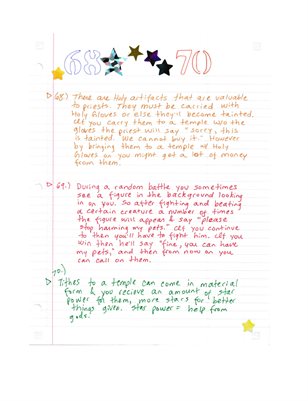 68 70
68.) There are Holy artifacts that are valuable
to priests. They must be carried with
Holy Gloves or else they'll become tainted.
If you carry them to a temple w/o the
gloves the priest will say "sorry, this
is tainted. We cannot buy it." However
by bringing them to a temple w/ Holy
Gloves on you might get a lot of money
from them.
69.) During a random battle you sometimes
see a figure in the background looking
in on you. So after fighting and beating
a certain creature a number of times
the figure will appear & say "please
stop harming my pets." If you continue
to then you'll have to fight him. If you
win then he'll say "fine, you can have
my pets," and then from now on you
can call on them.
70.)
Tithes to a temple can come in material
form & you recieve an amount of star
power for them, more stars for better
things given. Star power = help from
gods.